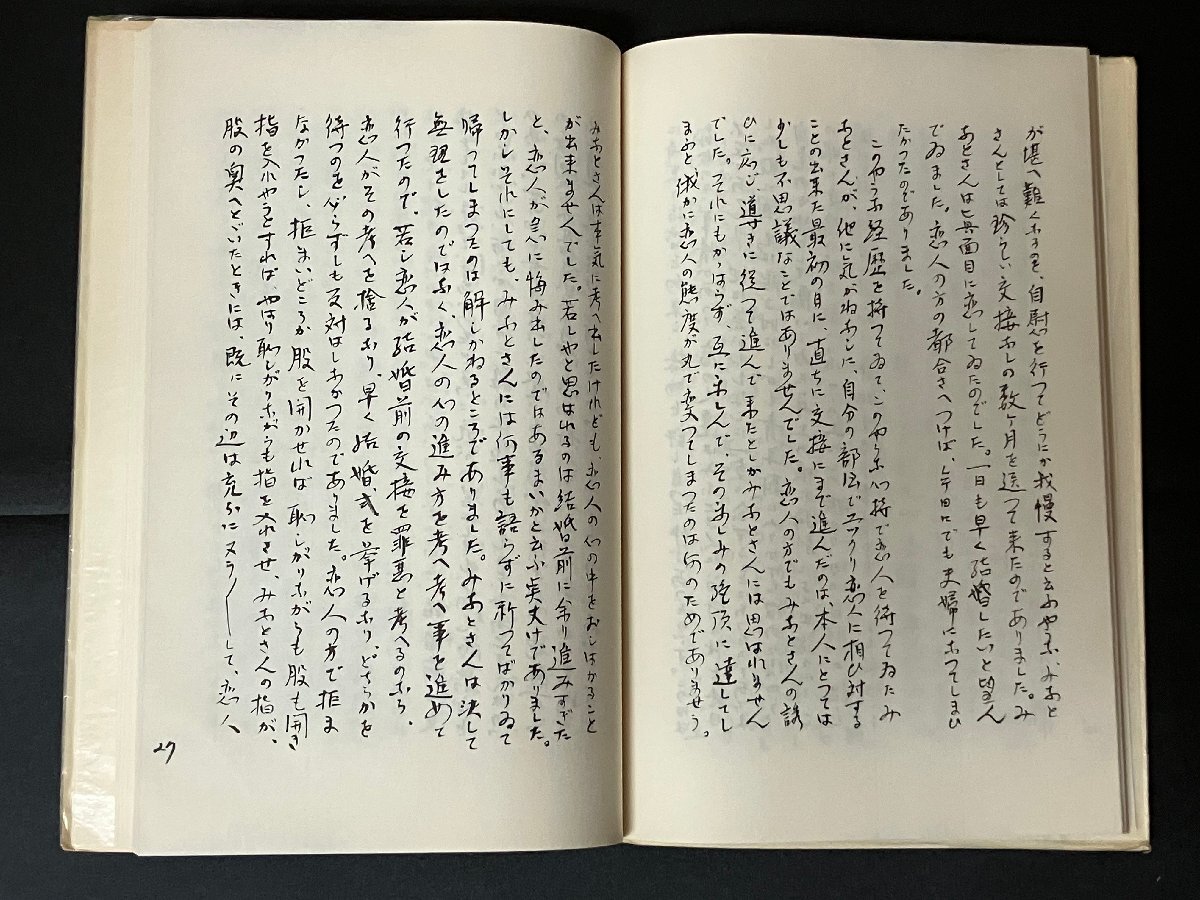 が堪へ難くなるを、自慰を行つてどうにか我慢すると云ふやうな、みさと
さんとしては珍らしい交接なしの数ヶ月を送つて来たのでありました。み
さとさんは真面目に恋してゐたのでした。一日も早く結婚したいと望ん
でゐました。恋人の方の都合さへつけば、今日にでも夫婦になつてしまひ
たかつたのでありました。
このやうな経歴を持つてゐて、このやうな心持で恋人を待つてゐたみ
さとさんが、他に気がねなしに、自分の部屋でユックリ恋人に相ひ対する
ことの出来た最初の日に、直ちに交接にまで進んだのは、本人にとつては
少しも不思議なことではありませんでした。恋人の方でもみさとさんの誘
ひに応じ、導きに従つて進んで来たとしかみさとさんには思はれません
でした。それにもかゝはらず、互に楽しんで、その楽しみの絶頂に達してし
まふと、俄かに恋人の態度が丸で変つてしまつたのは何のためでありませう。
みさとさんは本気に考へ出したけれども、恋人の心の中をおしはかること
が出来ませんでした。若しやと思はれるのは結婚前に余り進みすぎた
と、恋人が急に悔み出したのではあるまいかと云ふ実丈けでありました。
しかしそれにしても、みさとさんには何事も語らずに祈つてばかりゐて
帰つてしまつたのは解しかねるところでありました。みさとさんは決して
無理をしたのではなく、恋人の心の進み方を考へ考へ事を進めて
行つたので、若し恋人が結婚前の交接を罪悪と考へるのなら、
恋人がその考へを捨るなり、早く結婚式を挙げるなり、どちらかを
待つのを必らずしも反対はしなかつたのでありました。恋人の方で拒ま
なかつたし、拒まいどころか股を開かせれば恥しがりながらも股も開き
指を入れやうとすれば、やはり恥しがりながらも指を入れさせ、みさとさんの指が、
股の奥へとゞいたときには、既にその辺は充分にヌラ〳〵して、恋人
27